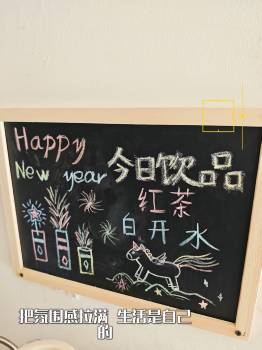 Happy
New year
今日饮品
红茶
白开水
把氛围感拉满 生活是自己
的